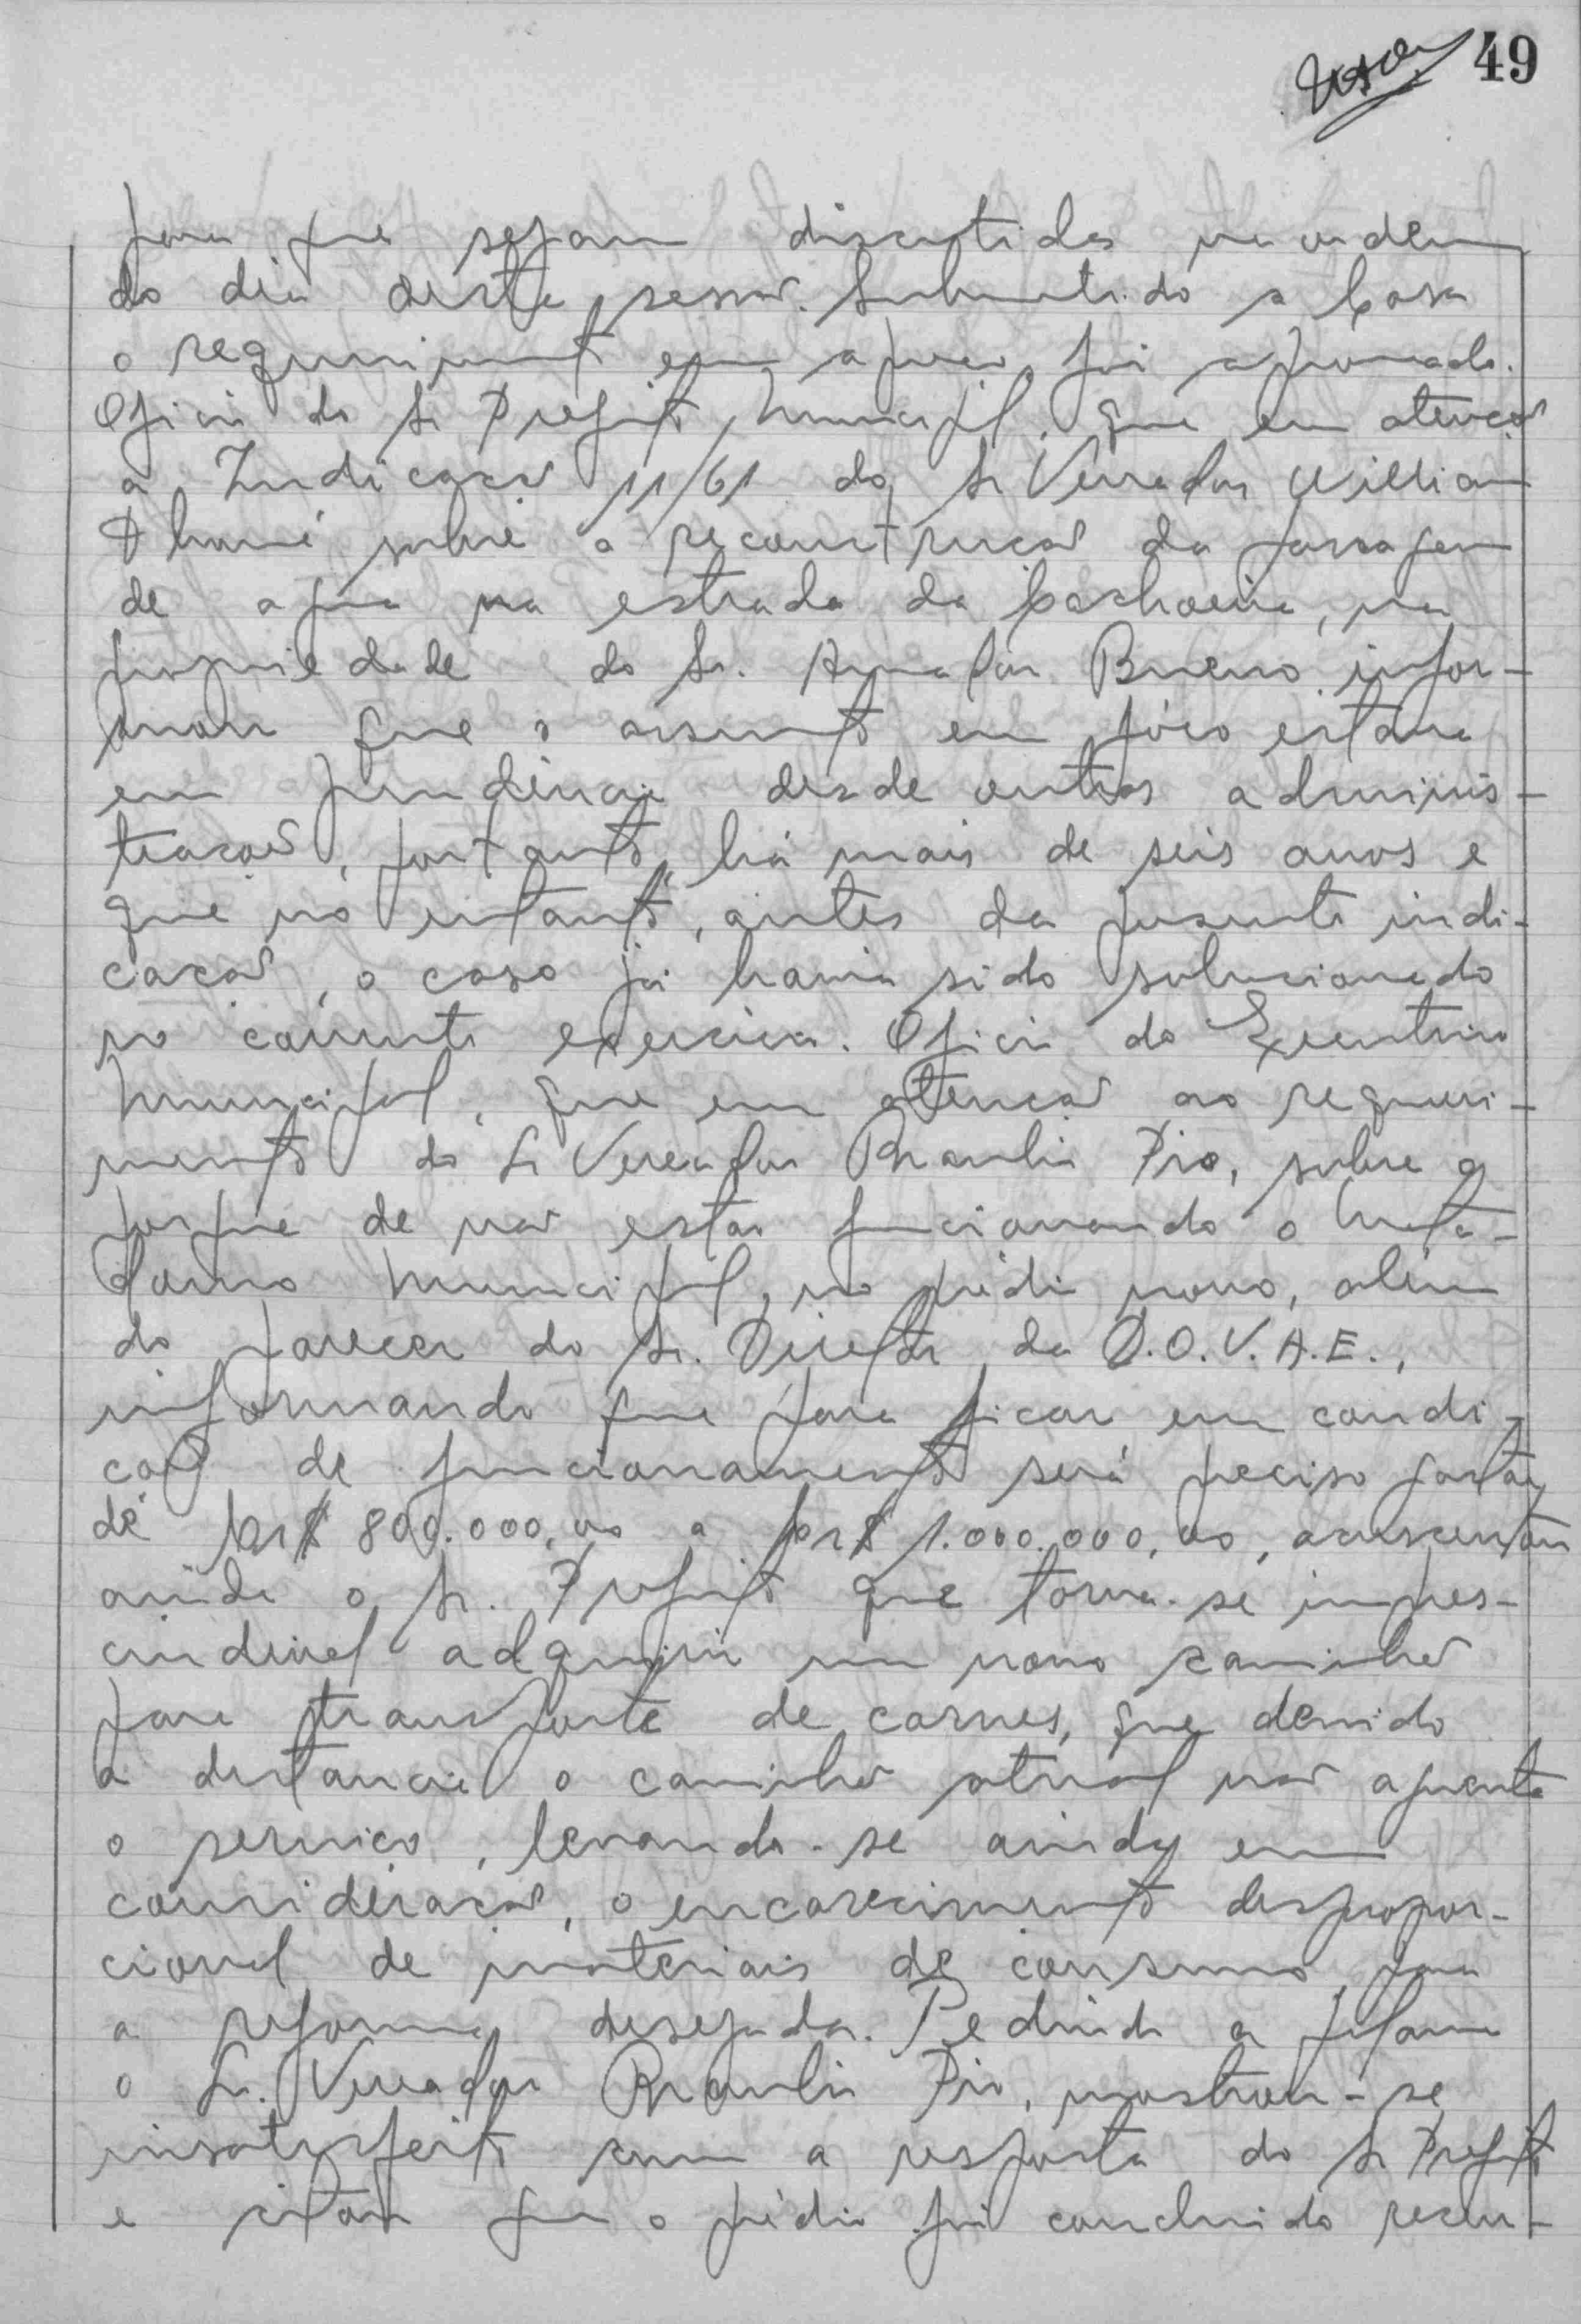 49
para que sejam discutidos na ordem
do dia desta sessão. Submetido a Casa
o requerimento em apreço, foi aprovado.
Oficio do Sr Prefeito Municipal, que em atenção
a Indicação 11/61 do Sr Vereador William
sobre a reconstrucão da passagem
de agua na estrada da Cachoeira, na
propriedade do Sr. Amador Bueno, infor-
mou que o assunto em fóco estava
em pendência desde outras adminis-
tracoes, portanto, há mais de seis anos e
que no entanto, antes da presente indi-
cação, o caso já havia sido solucionado
no corrente exercicio. Oficio do Executivo
Municipal, que em atencão ao requeri-
mento do Sr Vereador Braulio Pio, sobre o
porque de não estar funcionando o Mata-
douro Municipal, no prédio novo, além
do parecer do Sr. Diretor da D.O.V.A.E.,
informando que para ficar em condi-
cão de funcionamento será preciso gastar
de Cr$ 800.000,00 a Cr$ 1.000.000,00, acrescentou
ainda o Sr. Prefeito que torna-se impres-
cindivel adquirir um novo caminhão
para transporte de carnes, que devido
a distancia o caminhão atual não aguenta
o servico, levando-se ainda em
consideração, o encarecimento despropor-
cional de materiais de consumo para
a reforma desejada. Pedindo a palavra
o Sr. Vereador Braulio Pio, mostrou-se
insatisfeito com a resposta do Sr Prefeito
e citou que o prédio foi concluido recen-